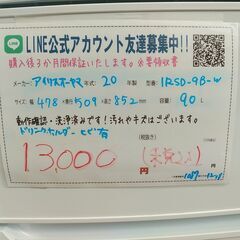 LINE LINE公式アカウント友達募集中!!
購入後3か月間保証いたします。※要領収書
メーカー アイリスオーヤマ 年式: 20 年製 型番: IRSD-9B-W
サイズ: 幅 478 ×奥行 509 ×高さ 852 mm 容量: 90 L
動作確認・洗浄済みです! 汚れやキズはございます。
ドリンクホルダー ヒビ有
(税抜き)
13,000